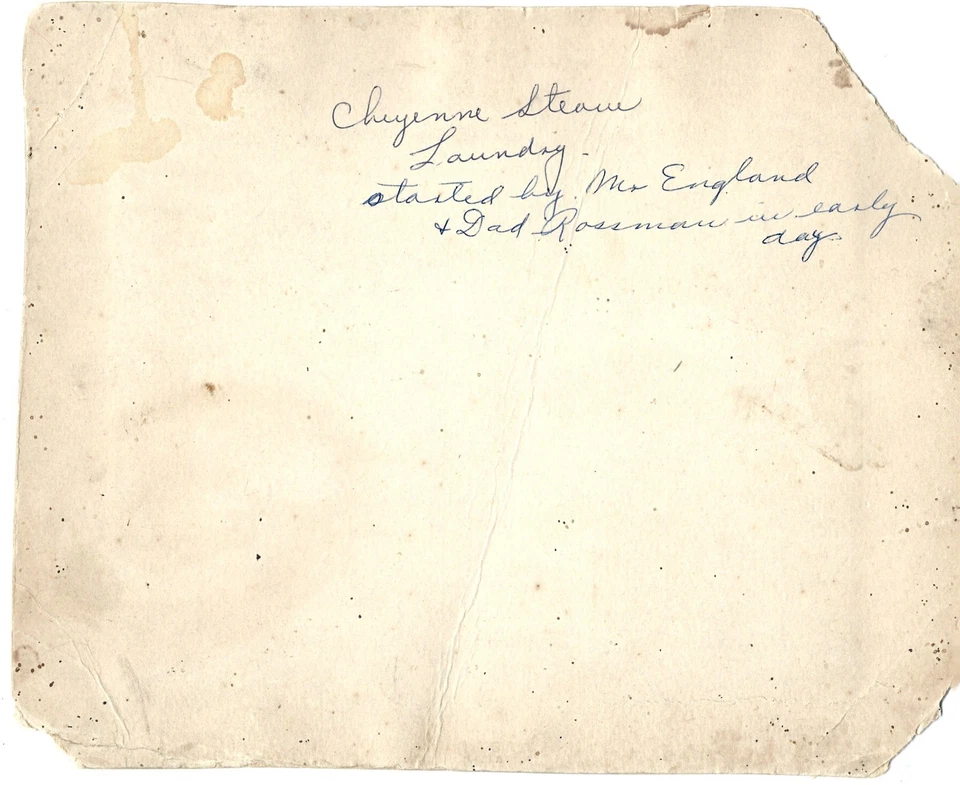 Cheyenne Steam
Laundry -
started by Mr England
+ Dad Rossman in early
days